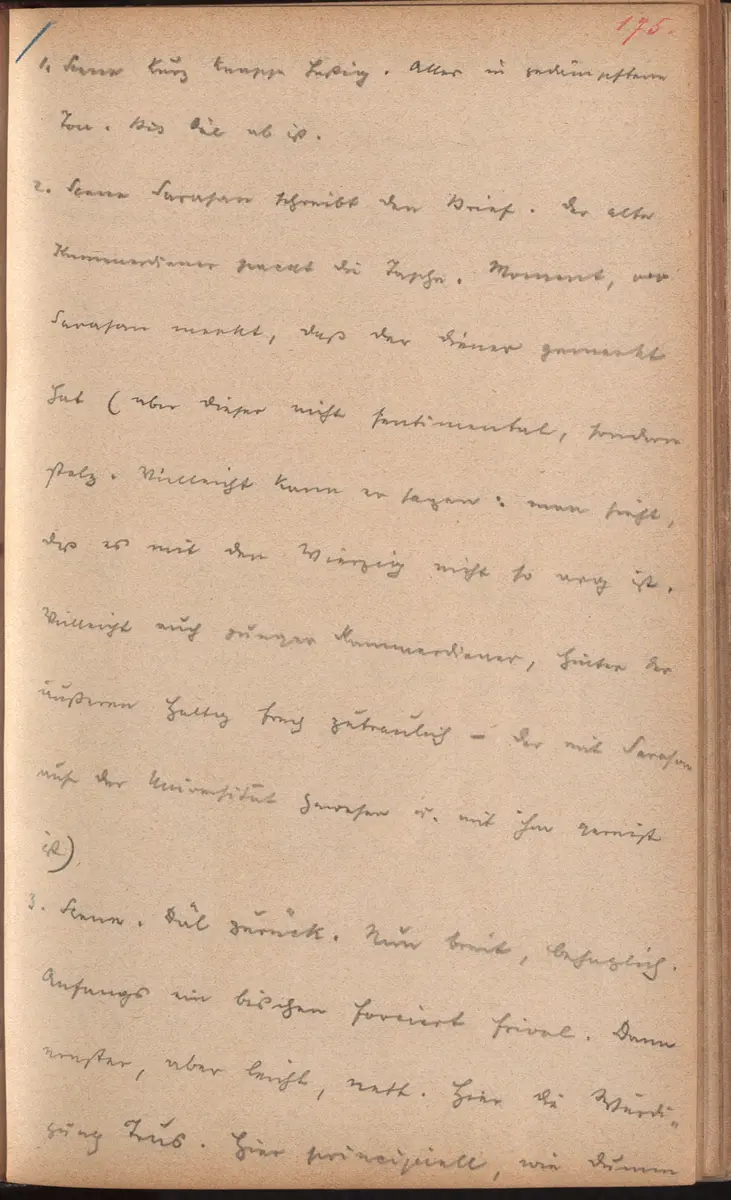 175.
1. Scene kurz knapp hastig. Alles in gedämpftem
Ton. Bis Däl ab ist.
2. Scene Sarasan schreibt den Brief. Der alte
Kammerdiener packt die Tasche. Moment, wo
Sarasan merkt, daß der Diener gemerkt
hat (aber dieser nicht sentimental, sondern
stolz. Vielleicht kann er sagen: man sieht,
daß es mit den Vierzig nicht so arg ist.
Vielleicht auch junger Kammerdiener, hinter der
äußeren Haltg frech zutraulich – der mit Sarasan
auf der Universität gewesen u. mit ihm gereist
ist)
3. Scene. Däl zurück. Nun breit, behaglich.
Anfangs ein bischen forciert frivol. Dann
ernster, aber leicht, nett. Hier die Würdi-
gung Trus. Hier principiell, wie dumm